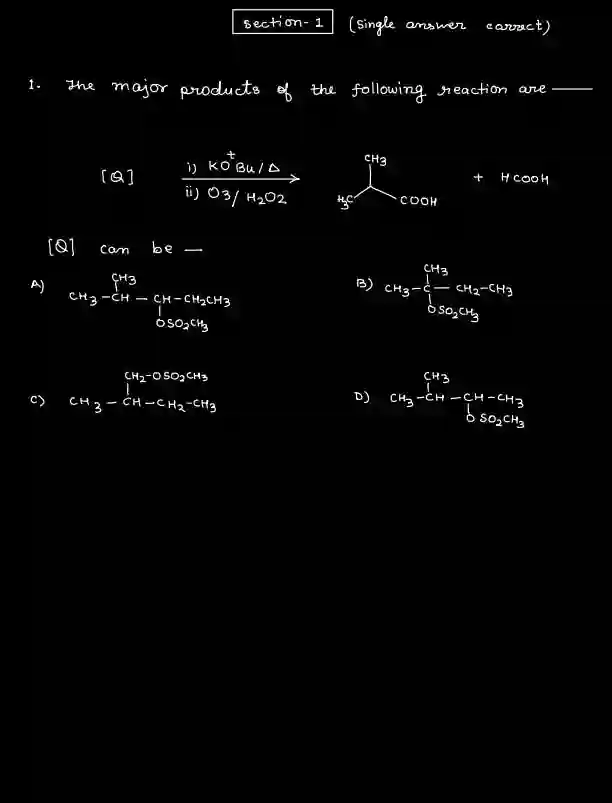 section-1 (single answer correct)
1. The major products of the following reaction are ——
[Q] i) KO⁺Bu/Δ ii) O3/H2O2 → CH3 H3C COOH + HCOOH
[Q] can be —
A) CH3-CH(CH3)-CH(OSO2CH3)-CH2CH3
B) CH3-C(CH3)(OSO2CH3)-CH2-CH3
C) CH3-CH(CH2-OSO2CH3)-CH2-CH3
D) CH3-CH(CH3)-CH(OSO2CH3)-CH3